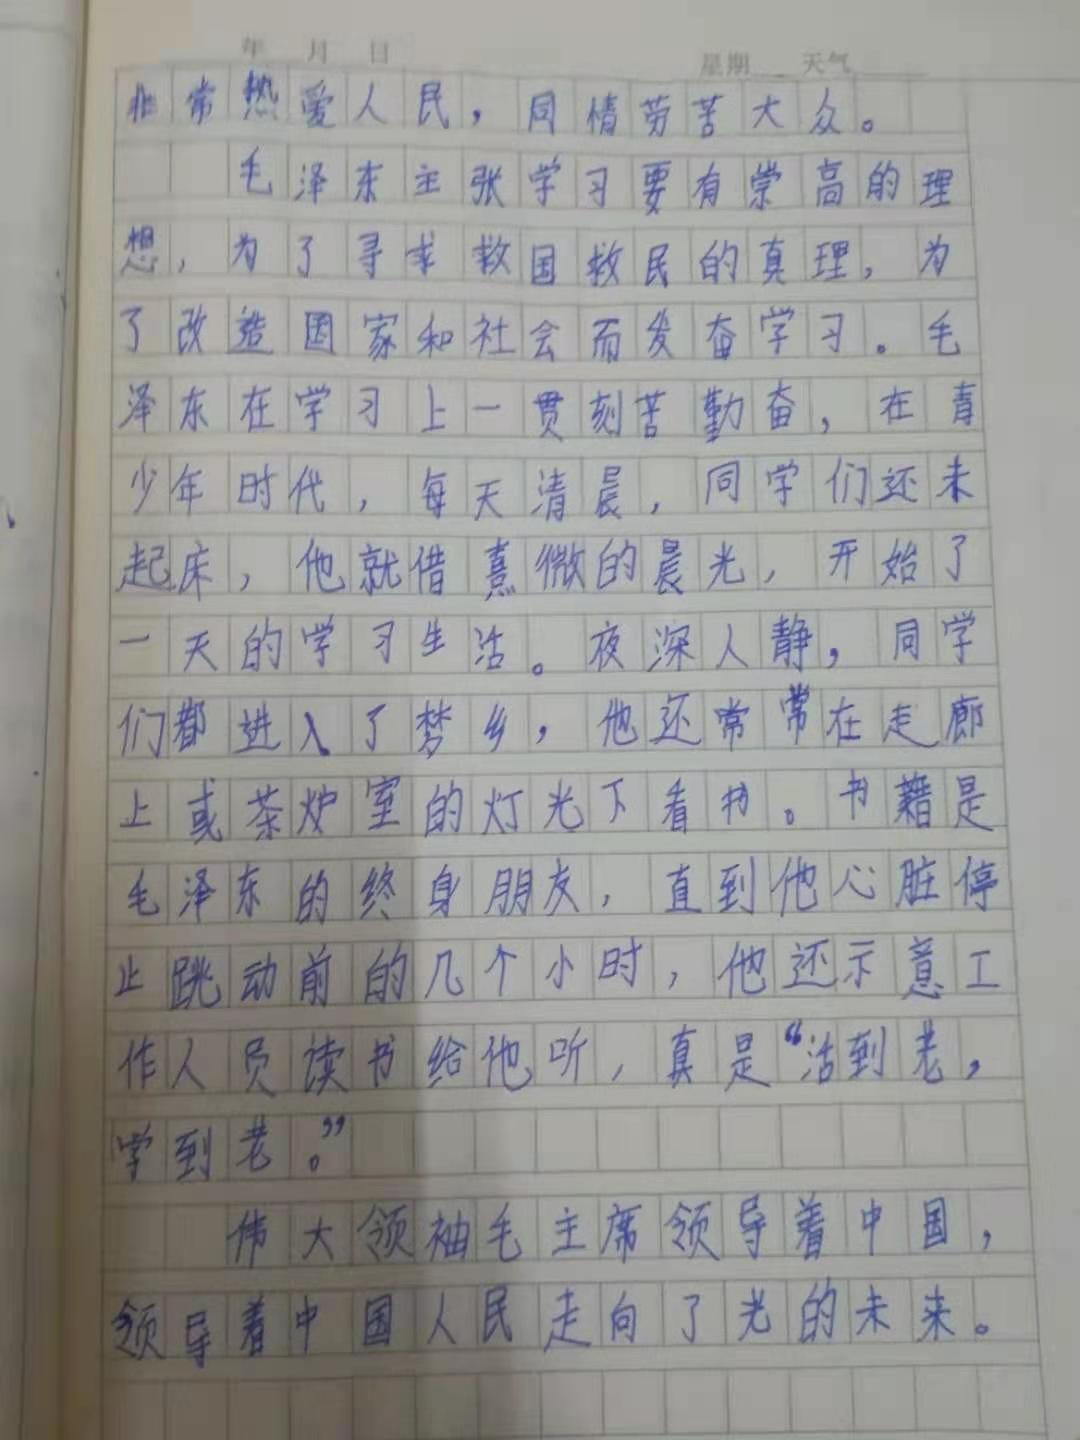 年 月 日 星期 天气
非常热爱人民，同情劳苦大众。
毛泽东主张学习要有崇高的理
想，为了寻求救国救民的真理，为
了改造国家和社会而发奋学习。毛
泽东在学习上一贯刻苦勤奋，在青
少年时代，每天清晨，同学们还未
起床，他就借熹微的晨光，开始了
一天的学习生活。夜深人静，同学
们都进入了梦乡，他还常常在走廊
上或茶炉室的灯光下看书。书籍是
毛泽东的终身朋友，直到他心脏停
止跳动前的几个小时，他还示意工
作人员读书给他听，真是“活到老，
学到老。”
伟大领袖毛主席领导着中国，
领导着中国人民走向了光的未来。